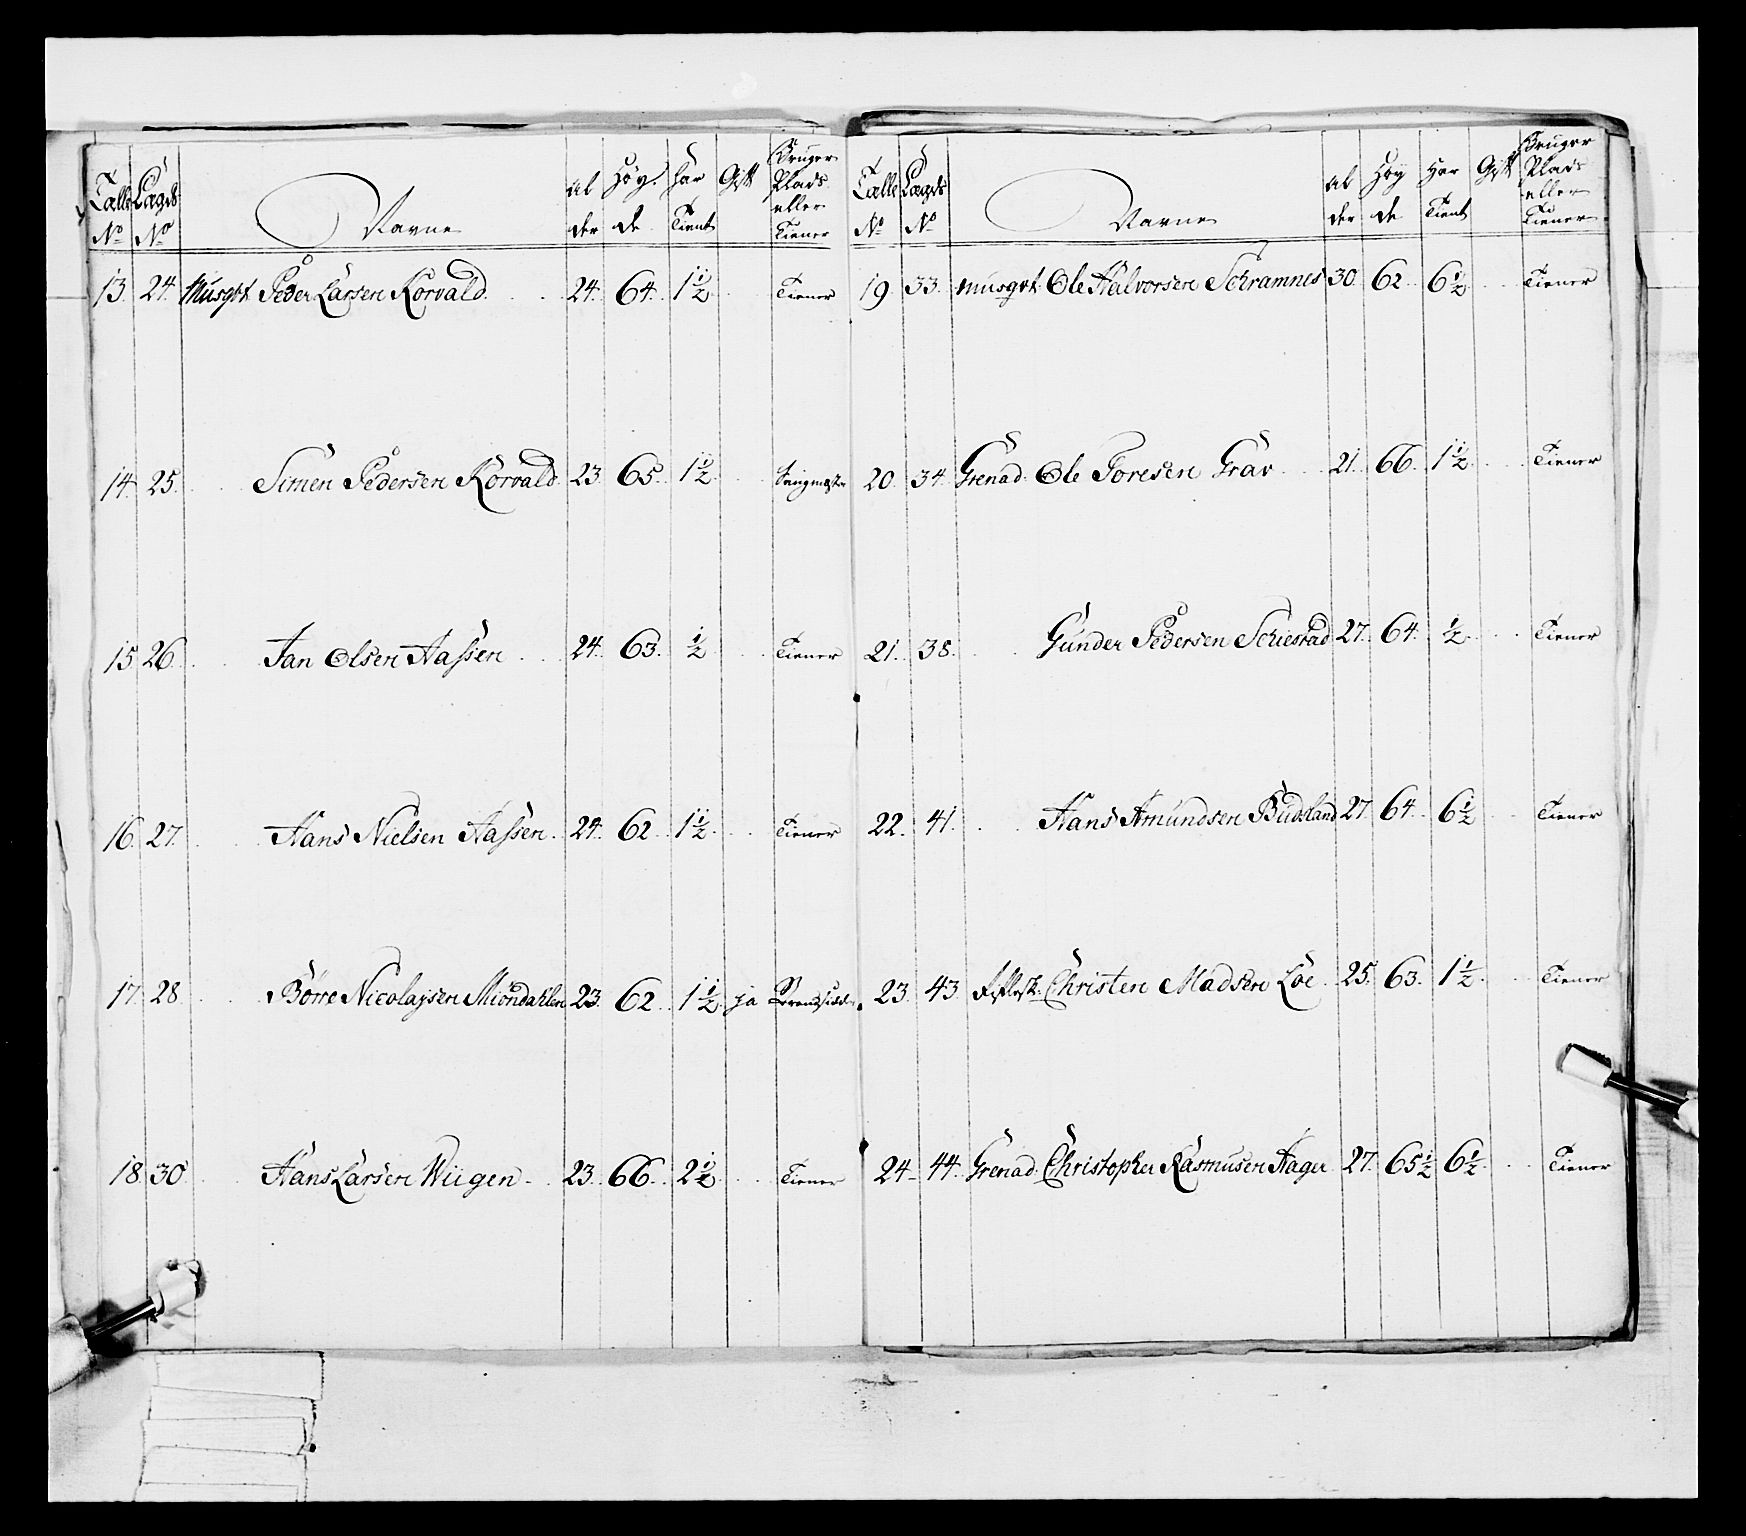 Tælle N° Lægds N° Navne Al der Høy de Har Tient Gift Bruger Plads eller Tiener
13. 24. Musqvt Peder Larsen Korvald. 24. 64. 1½. Tiener
14 25. Simen Pedersen Korvald 23. 65. 1½.
15 26. Jan Olsen Aassen 24. 63. ½ Tiener
16. 27. Hans Nielsen Aassen. 24. 62. 1½. Tiener
17. 28. Börre Nicolaysen Miöndahlen 23. 62. 1½. ja
18. 30. Hans Larsen Wiigen. 23. 66. 2½. Tiener
Tælle N° Lægds N° Navne Al der Høy de Har Tient Gift Bruger Plads eller Tiener
19. 33. Musqvt Ole Halvorsen Schramnes 30. 62. 6½ Tiener
20. 34. Grenad. Ole Toresen Grav 21. 66. 1½. Tiener
21. 38. Gunder Pedersen Schiesrad 27. 64. ½. Tiener
22. 41. Hans Amundsen Budsland 27. 64. 6½ Tiener
23. 43. Christen Madsen Loe 25. 63. 1½. Tiener
24. 44. Grenad. Christopher Rasmusen Aager 27. 65½ 6½. Tiener